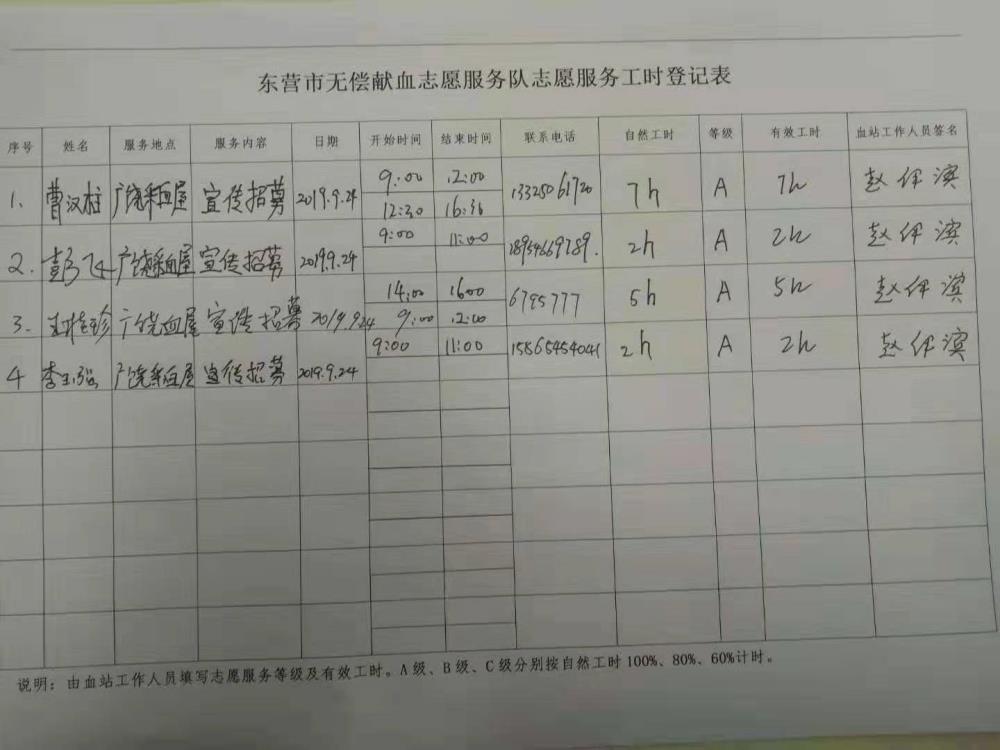 东营市无偿献血志愿服务队志愿服务工时登记表
序号 姓名 服务地点 服务内容 日期 开始时间 结束时间 联系电话 自然工时 等级 有效工时 血站工作人员签名
1. 曹汉柱 广饶采血屋 宣传招募 2019.9.24 9:00 12:00 13325061720 7h A 7h
12:30 16:30
2. 彭飞 广饶采血屋 宣传招募 2019.9.24 9:00 11:00 18954669789. 2h A 2h
3. 广饶血屋 宣传招募 2019.9.24 14:00 16:00 6795777 5h A 5h
9:00 12:00
4 李玉强 广饶采血屋 宣传招募 2019.9.24 9:00 11:00 15865454041 2h A 2h
说明：由血站工作人员填写志愿服务等级及有效工时。A级、B级、C级分别按自然工时100%、80%、60%计时。